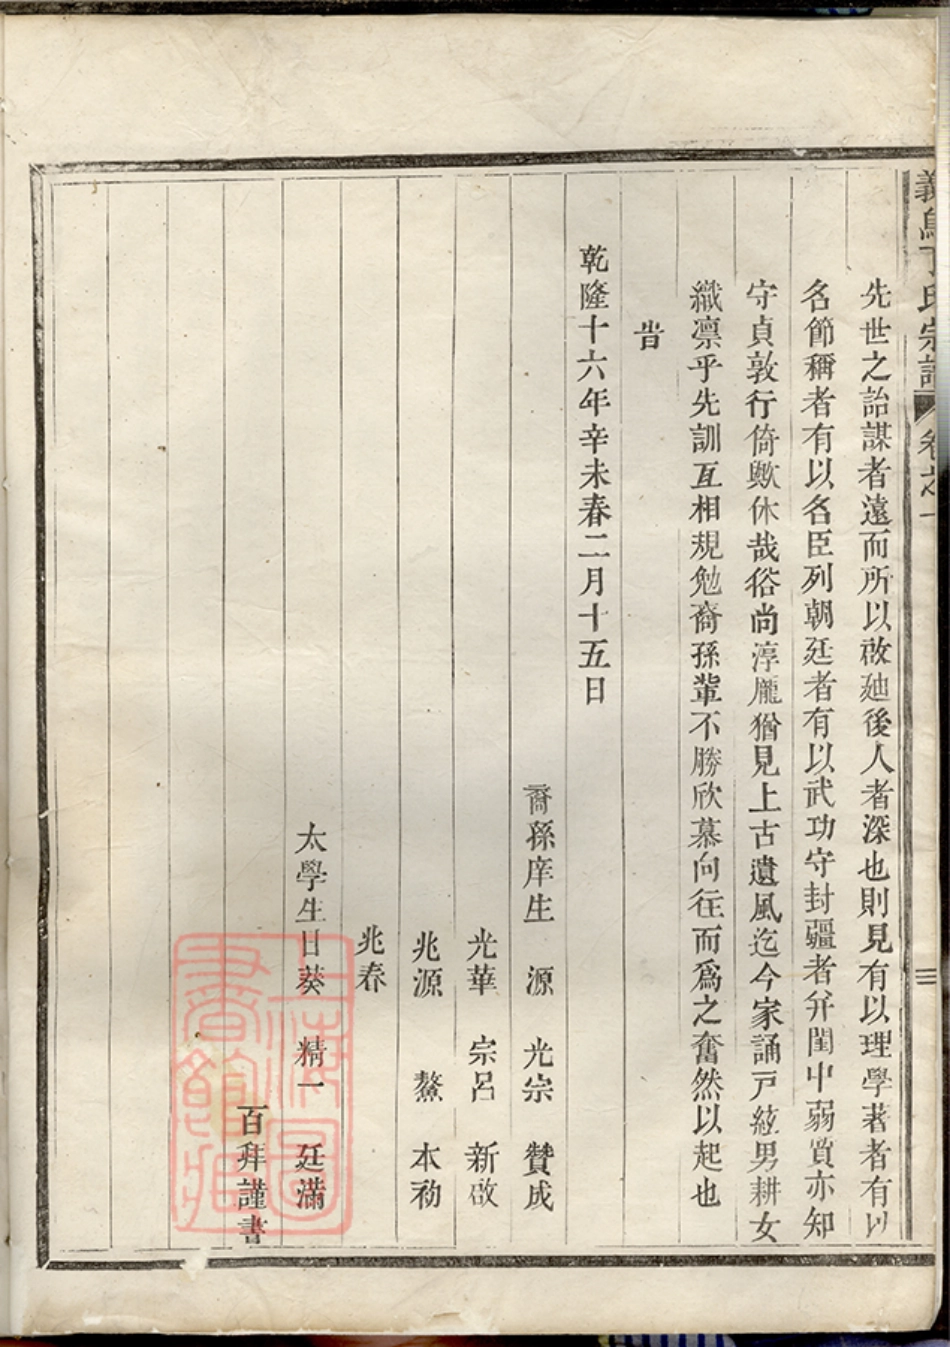 義烏丁氏宗譜 卷之一 三
先世之詒謀者遠而所以啟廸後人者深也則見有以理學著者有以
名節稱者有以名臣列朝廷者有以武功守封疆者弁閨中弱質亦知
守貞敦行倚歟休哉俗尚淳龐猶見上古遺風迄今家誦戸絃男耕女
織凛乎先訓互相規勉裔孫輩不勝欣慕向往而爲之奮然以起也
旹
乾隆十六年辛未春二月十五日
裔孫庠生 源 光宗 贊成
光華 宗呂 新啟
兆源 鰲 本礽
兆春
太學生日葵 精一 廷滿
百拜謹書
上海圖書館藏